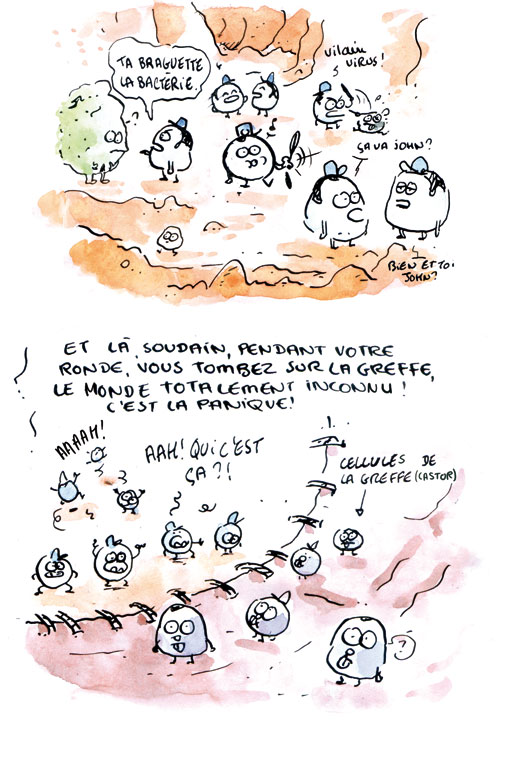 TA BRAGUETTE
LA BACTÉRIE.
?
vilain
virus!
ÇA VA JOHN?
BIEN ET TOI
JOHN?
ET LÀ, SOUDAIN, PENDANT VOTRE
RONDE, VOUS TOMBEZ SUR LA GREFFE,
LE MONDE TOTALEMENT INCONNU!
C'EST LA PANIQUE!
AAAAH!
AAH! QUI C'EST
ÇA?!
!
CELLULES DE
LA GREFFE (CASTOR)
?